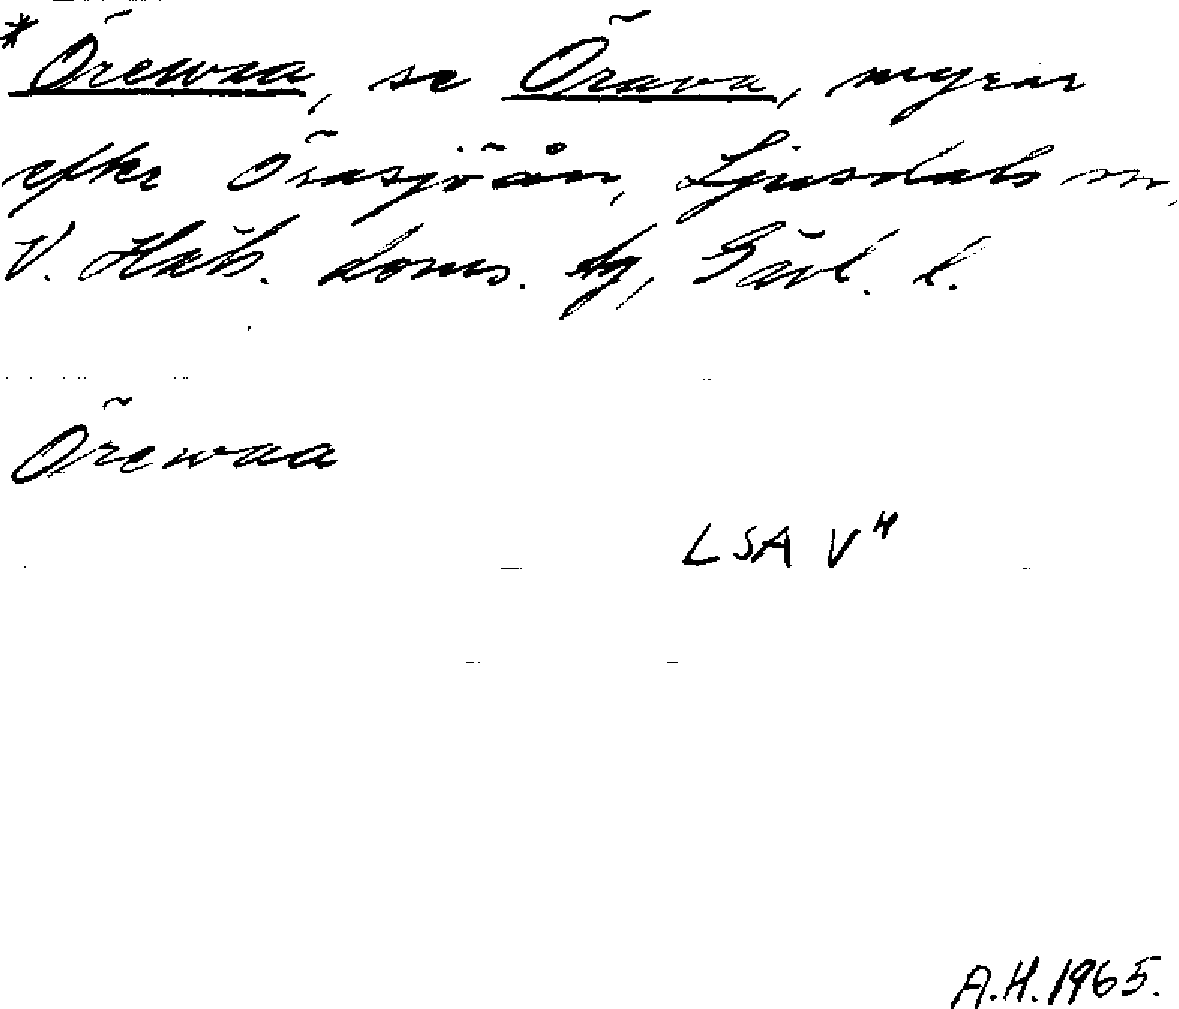 * Örewaa, se Örava, myrar
efter Örasjöån, Ljusdals sn,
V. Häls. doms. hg, Gävl. l.
Örewaa
LSA V⁴
A.H. 1965.